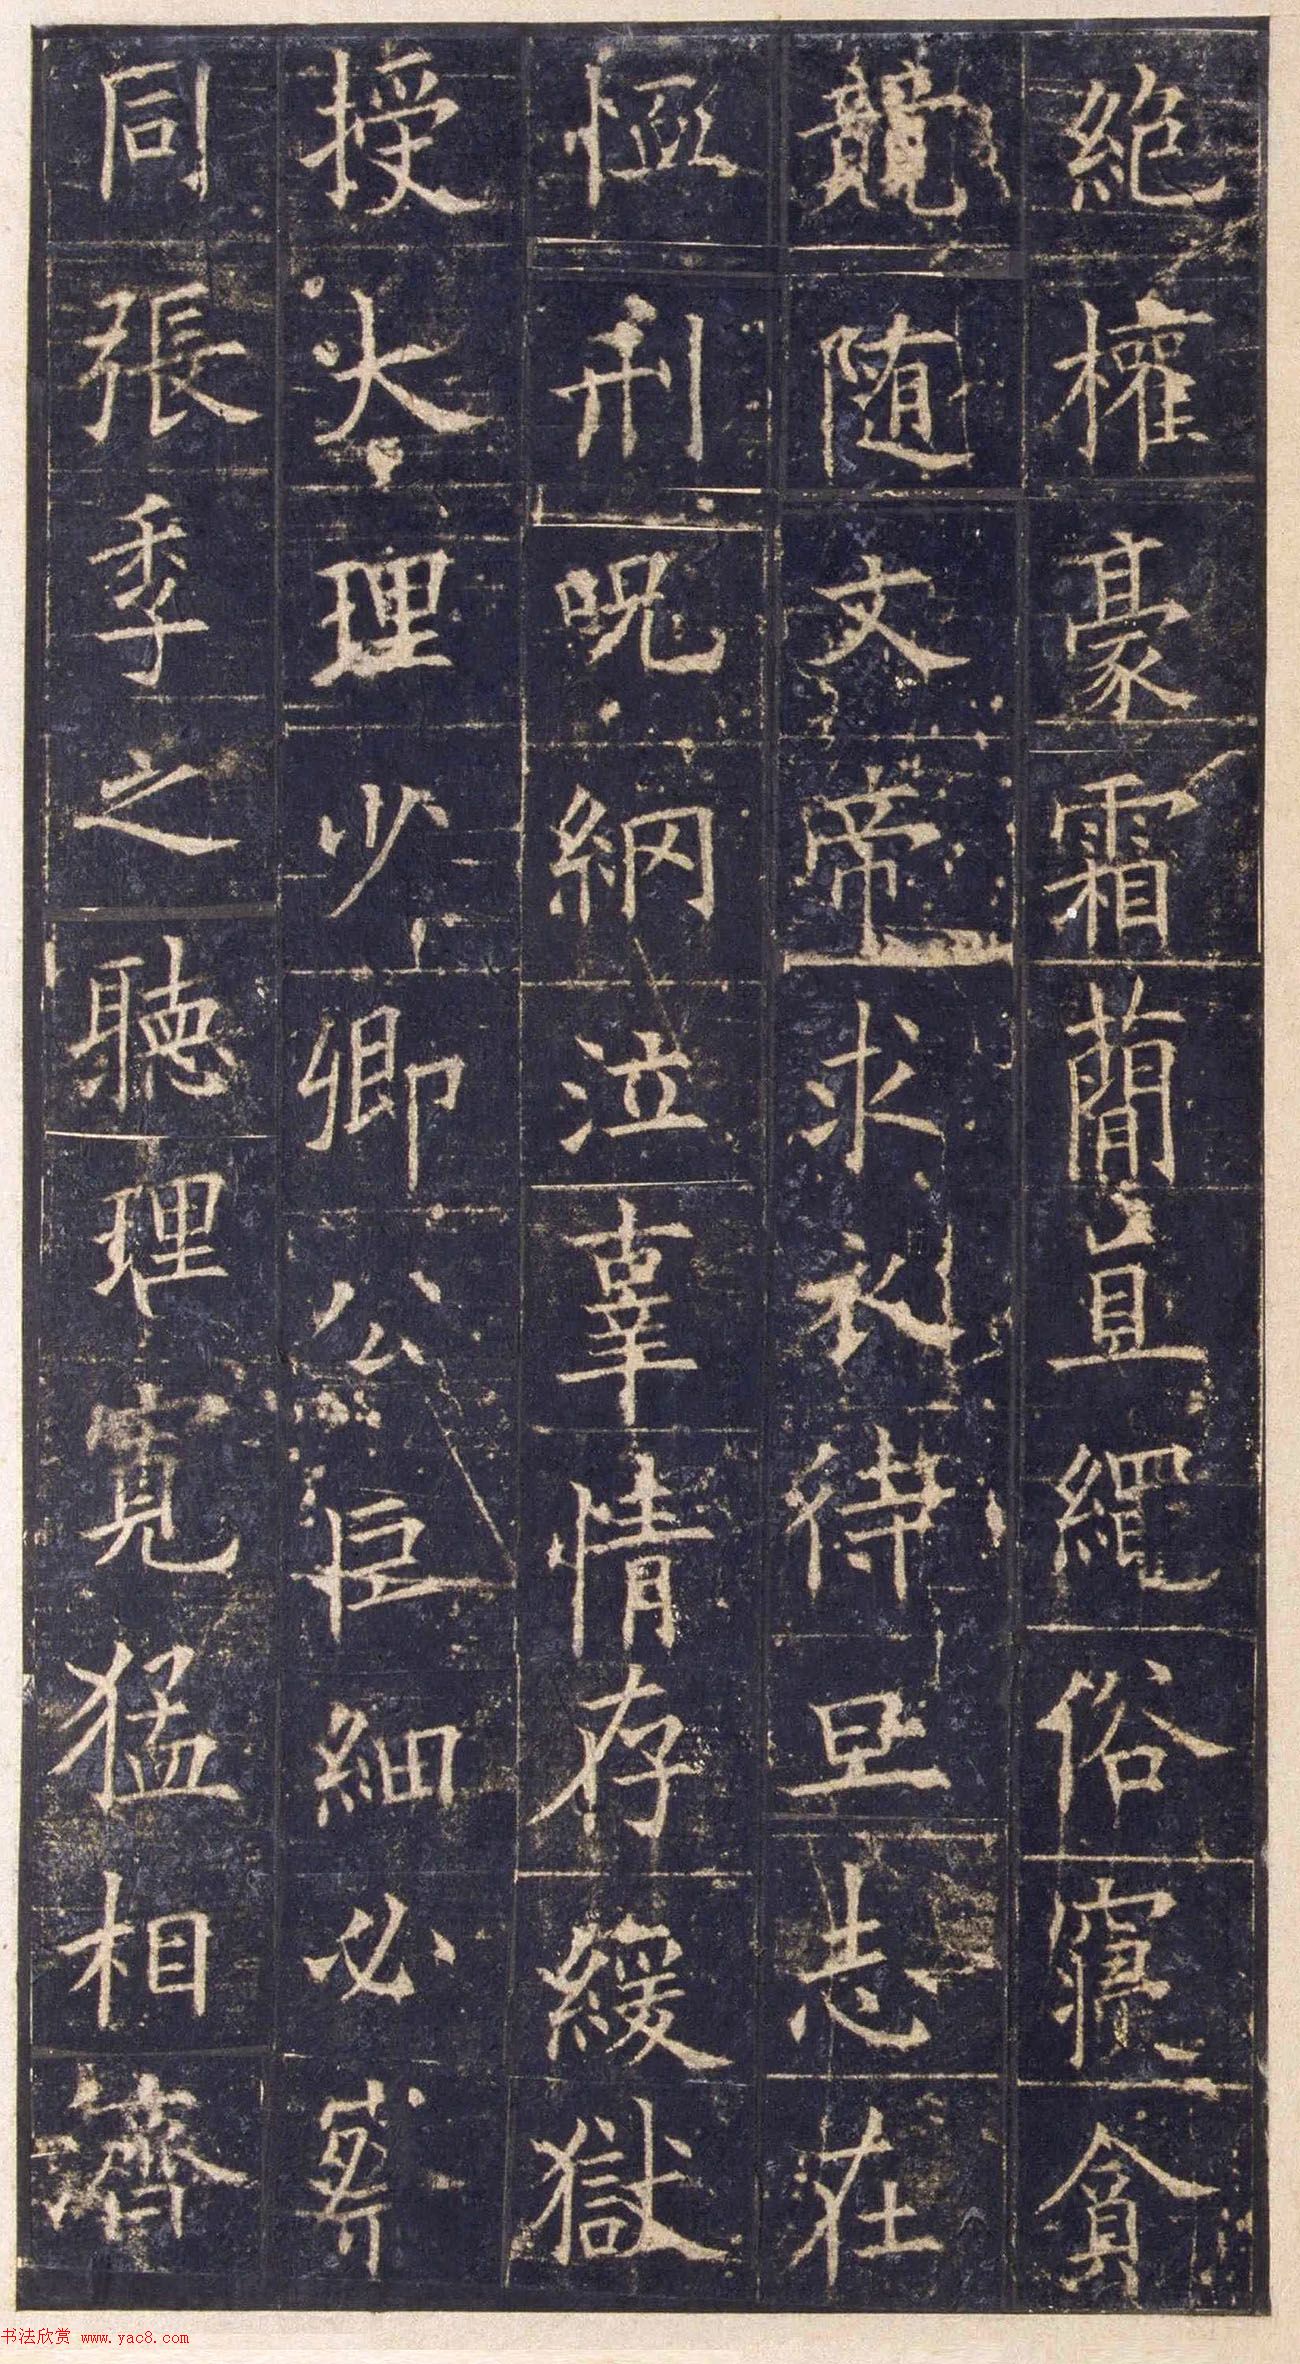 絶權豪霜簡直繩俗寢貪
競随文帝求衣待旦志在
恤刑咒網泣辜情存緩獄
授大理少卿公巨細必察
同張季之聽理寬猛相濟
书法欣赏 www.yac8.com